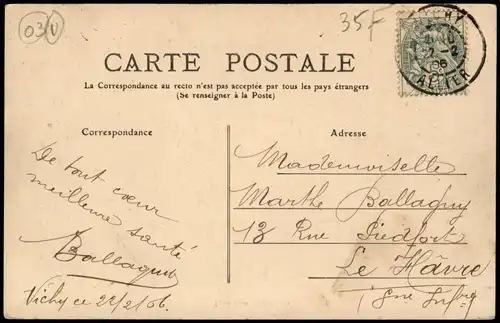 03V
35F
VICHY
06
ALLIER
CARTE POSTALE
La Correspondance au recto n'est pas acceptée par tous les pays étrangers
(Se renseigner à la Poste)
Correspondance
De tout cœur
meilleure santé
Ballaguy
Vichy ce 22/2/06.
Adresse
Mademoiselle
Marthe Ballaguy
13 Rue Piedfort
Le Hâvre